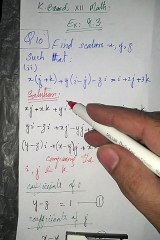 K-Board XII Math:
Ex: 8.3
Q10 Find scalars x, y, z
Such that:
(ii)
x(j+k)+y(i-j)-zi = i+2j+3k
Solution:
xj+xk+yi
yi-zi+xj-yj
(y-z)i+(x-y)
Comparing
i, j & k
coefficients of i
y-z = 1 — ①
coefficients of j